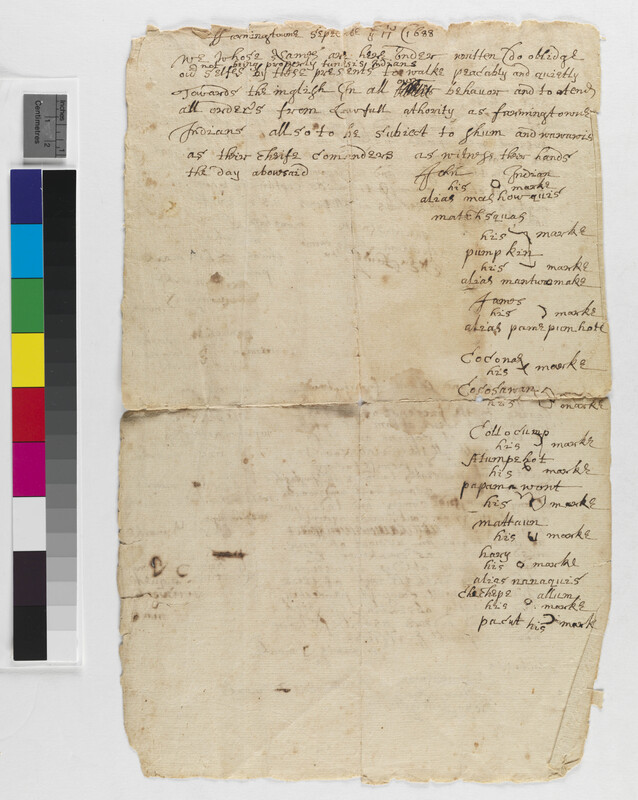 ffarmingtowne September ye 17 (1688
We whose Names are here under written do oblidge
not being properly tunksis Indians
our selfes by these presents to walke peacably and quietly
Towards the inglish In all our behavor and to atend
all orders from Lawfull athority as farmingtowne
Indians allso to be subiect to shum and wawawis
as their cheife comanders as witness their hands
the day abovesaid
John Indian
his marke
alias mashowquis
matthsquas
his marke
pumpkin
his marke
alias mantuomake
James
his marke
alias pamepiomhott
Coconas
his marke
Cocosawan
his marke
Collocump
his marke
Stumpehot
his marke
papamawont
his marke
mattawn
his marke
hary
his marke
alias nanaquis
cheshepe allum
his marke
pacut his mark
Centimetres
inches
1
2
1